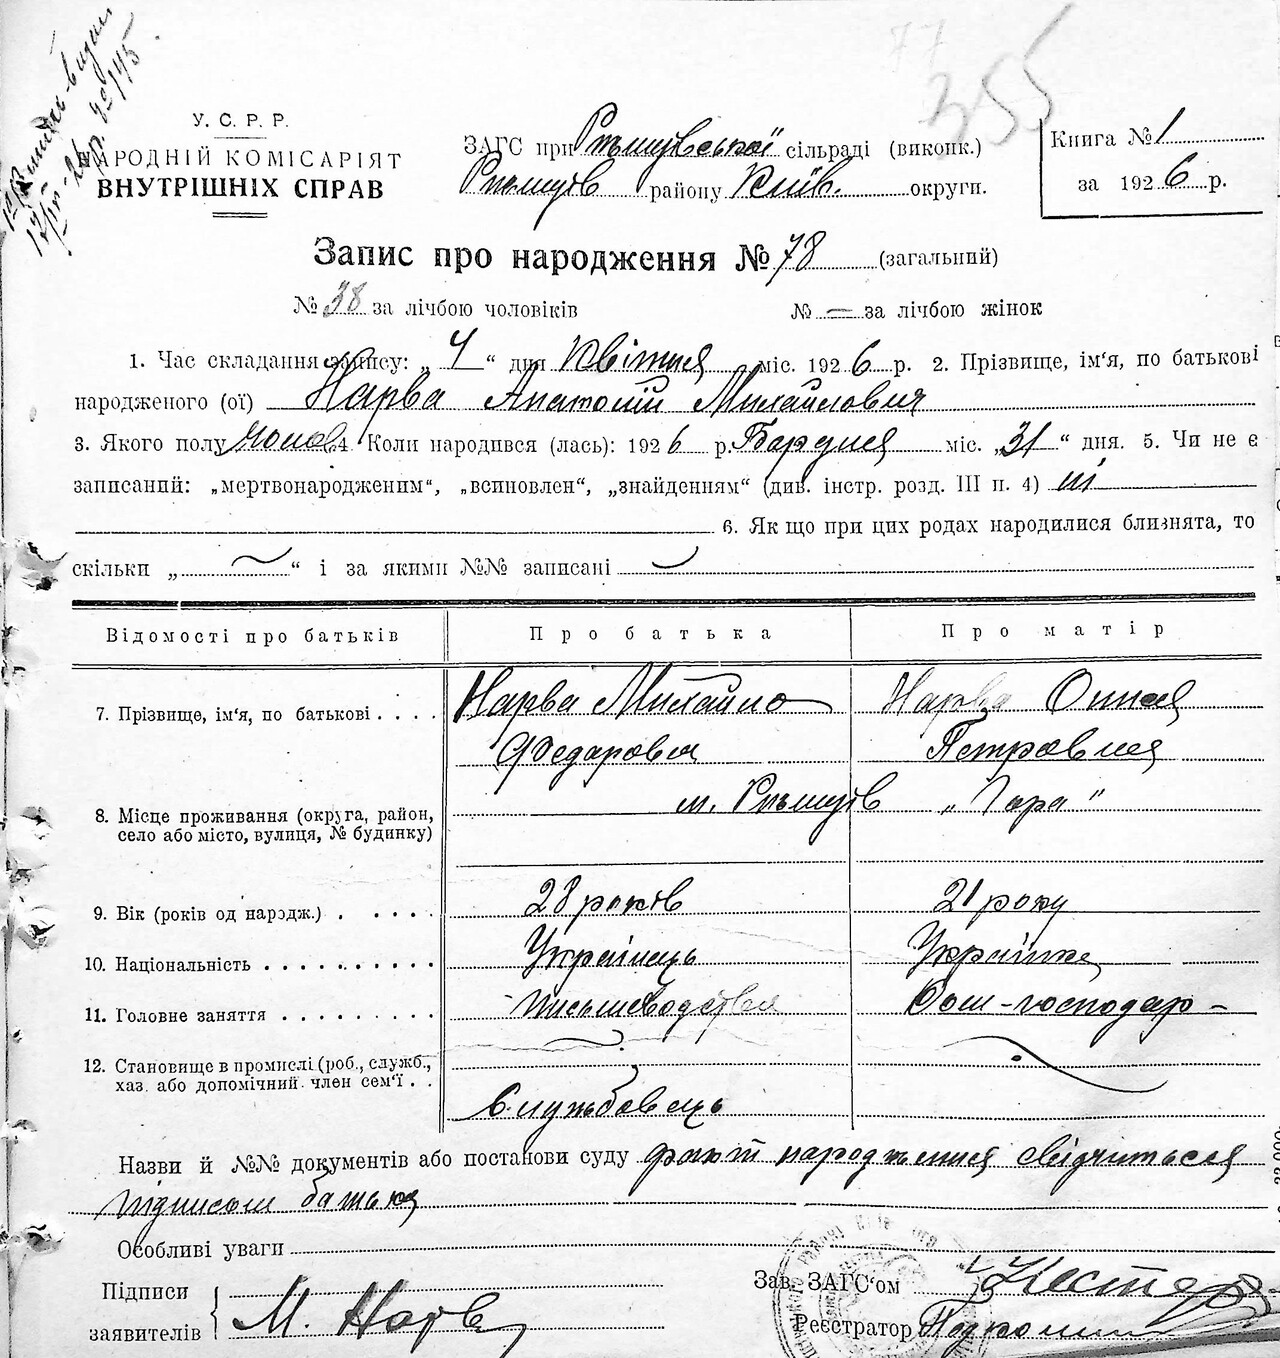 77
355
У. С. Р. Р.
НАРОДНІЙ КОМІСАРІЯТ
ВНУТРІШНІХ СПРАВ
ЗАГС при Ржищівської сільраді (виконк.)
Ржищів району Київ. округи.
Книга № 1
за 1926 р.
Запис про народження № 78 (загальний)
№ 38 за лічбою чоловіків № — за лічбою жінок
1. Час складання запису: „ 4 “ дня Квітня міс. 1926 р. 2. Прізвище, ім‘я, по батькові
народженого (ої) Нарва Анатолій Михайлович
3. Якого полу чолов. 4. Коли народився (лась): 1926 р. Бардня міс. „31“ дня. 5. Чи не є
записаний: „мертвонародженим“, „всиновлен“, „знайденням“ (див. інстр. розд. III п. 4) ні
6. Як що при цих родах народилися близнята, то
скільки „ — “ і за якими №№ записані —
Відомості про батьків Про батька Про матір
7. Прізвище, ім‘я, по батькові . . . . Нарва Михайло Нарва Ольга
Федарович Петровня
8. Місце проживання (округа, район, м. Ржищів „Гора“
село або місто, вулиця, № будинку)
9. Вік (років од нарэдж.) . . . . . 28 років 21 року
10. Національність . . . . . . . . . . Українець Українка
11. Головне заняття . . . . . . . . . письмеводство Дом-господар-
12. Становище в промислі (роб., служб.,
хаз. або допомічний. член сем‘ї . . Службовець
Назви й №№ документів або постанови суду факт народження свідчиться
підписом батька
Особливі уваги
Підписи
заявителів М. Нарва
Зав. ЗАГС‘ом Нестер
Реєстратор